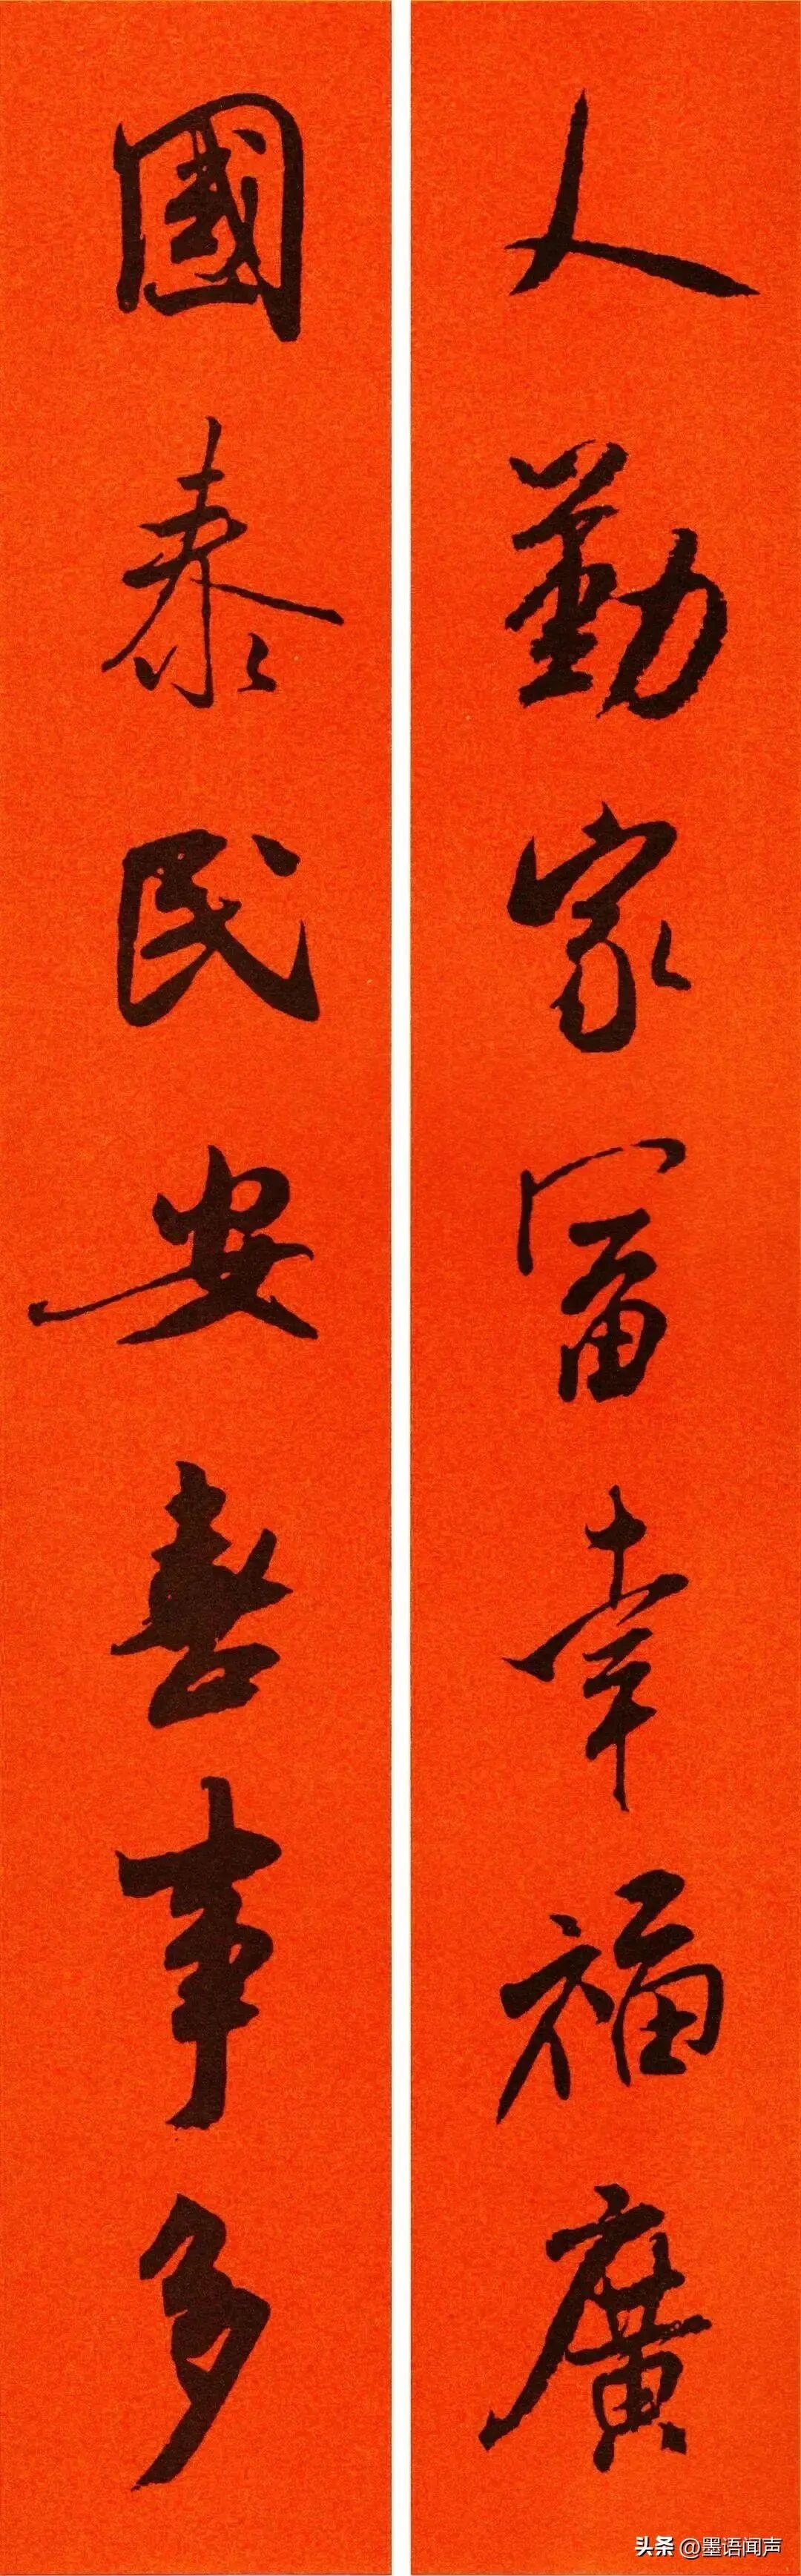 人勤家富幸福廣
國泰民安喜事多
头条 @墨语闻声